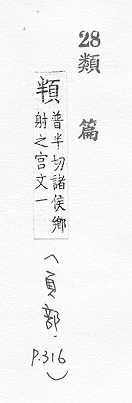 28類篇
頖
普半切諸侯鄉
射之宫文一
(頁部, P.316)